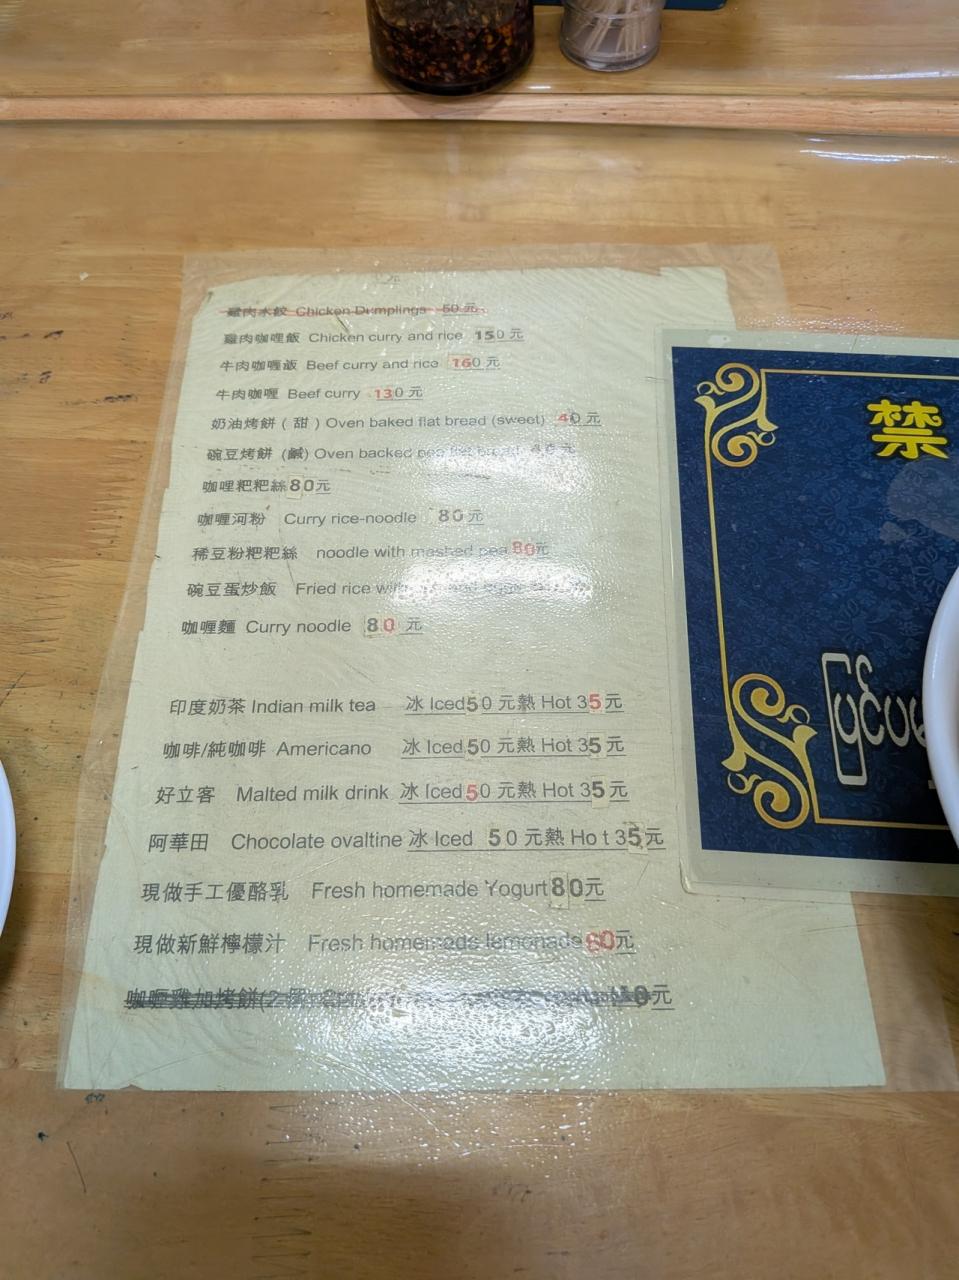 雞肉水餃 Chicken Dumplings 50元
雞肉咖哩飯 Chicken curry and rice 150元
牛肉咖喱飯 Beef curry and rice 160元
牛肉咖喱 Beef curry 130元
奶油烤餅(甜) Oven baked flat bread (sweet) 40元
碗豆烤餅 (鹹) Oven backed pea flat bread 40元
咖哩粑粑絲80元
咖喱河粉 Curry rice-noodle 80元
稀豆粉粑粑絲 noodle with mashed pea 80元
碗豆蛋炒飯 Fried rice with and eggs
咖喱麵 Curry noodle 80 元
印度奶茶 Indian milk tea 冰 Iced50元熱 Hot 35元
咖啡/純咖啡 Americano 冰 Iced 50元熱 Hot 35元
好立客 Malted milk drink 冰 Iced50元熱 Hot 35元
阿華田 Chocolate ovaltine 冰 Iced 50元熱 Ho t 35元
現做手工優酪乳 Fresh homemade Yogurt80元
現做新鮮檸檬汁 Fresh homemade lemonade60元
咖喱雞加烤餅(2個) 元
禁